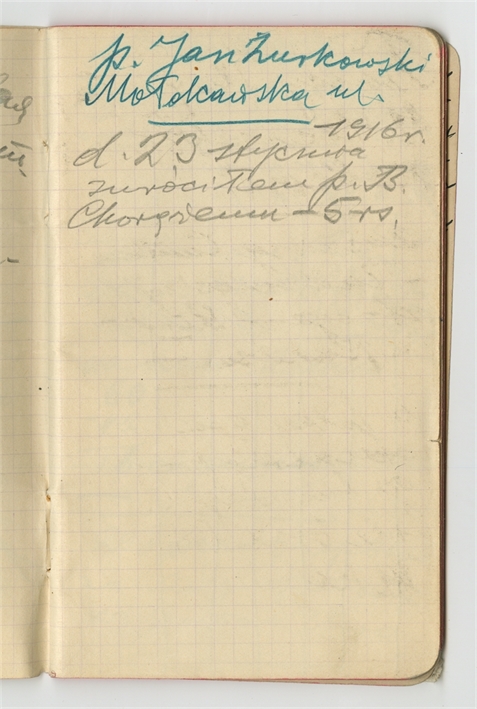 p. Jan Żurkowski
Mołdkawska ul.
1916 r.
d. 23 stycznia
zwróciłem p. B.
Chorążemu – 5 rs.